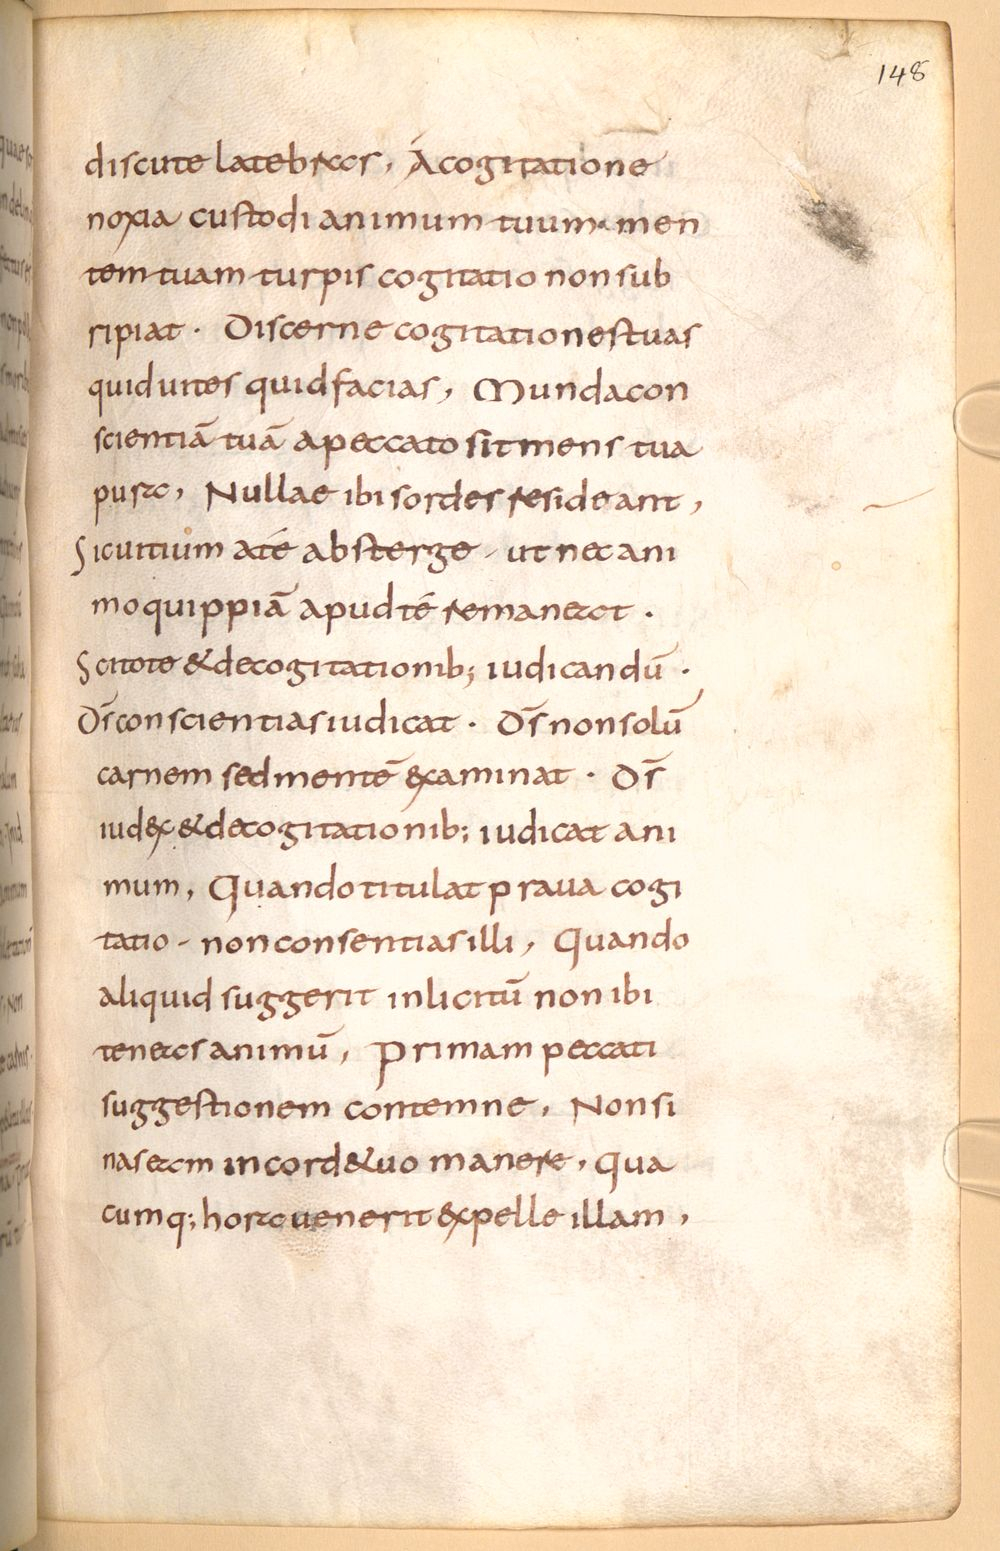 148
discute latebras, Á cogitatione
noxia custodi animum tuum. men
tem tuam turpis cogitatio non sub
ripiat. Discerne cogitationes tuas
quid uites quid facias, Munda con
scientiā tuā a peccato sit mens tua
pura, Nullae ibi sordes resideant,
Sic uitium a té absterge - ut nec ani
mo quippiā apud té remaneat.
Scitote & de cogitationib; iudicandū.
Dr̄s conscientias iudicat. Dr̄s non solū
carnem sed mentē examinat. Dr̄s
iudex & de cogitationib; iudicat ani
mum, Quando titulat praua cogi
tatio - non consentias illi, Quando
aliquid suggerit inlicitū non ibi
teneas animū, Primam peccati
suggestionem contemne, Non si
nas eam in cord& uo manere, Qua
cumq; hora uenerit expelle illam,